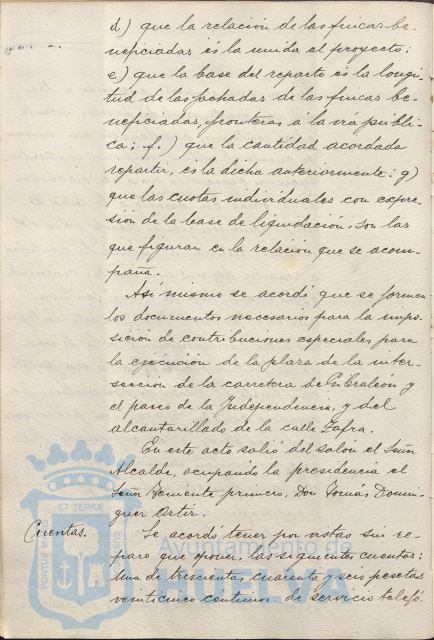 d) que la relación de las fincas be-
neficiadas es la unida al proyecto;
e) que la base del reparto es la longi-
tud de las fachadas de las fincas be-
neficiadas, fronteras, a la vía públi-
ca; f.) que la cantidad acordada
repartir, es la dicha anteriormente: g)
que las cuotas individuales con expre-
sión de la base de liquidación, son las
que figuran en la relación que se acom-
paña.
Así mismo se acordó que se formen
los documentos necesarios para la impo-
sición de contribuciones especiales para
la ejecución de la plaza de la inter-
sección de la carretera de Gibraleon y
el paseo de la Independencia, y del
alcantarillado de la calle Zafra.
En este acto salió del salón el Señor
Alcalde, ocupando la presidencia el
Señor Teniente primero, Don Tomás Domin-
guez Ortiz.
Cuentas. Se acordó tener por vistas sin re-
paro que oponer, las siguientes cuentas:
Una de trescientas cuarenta y seis pesetas
veinticinco centimos de servicio telefó-
PORTUS MARIS
ET TERRÆ
CUSTODIA
Ayuntamiento de
HUELVA